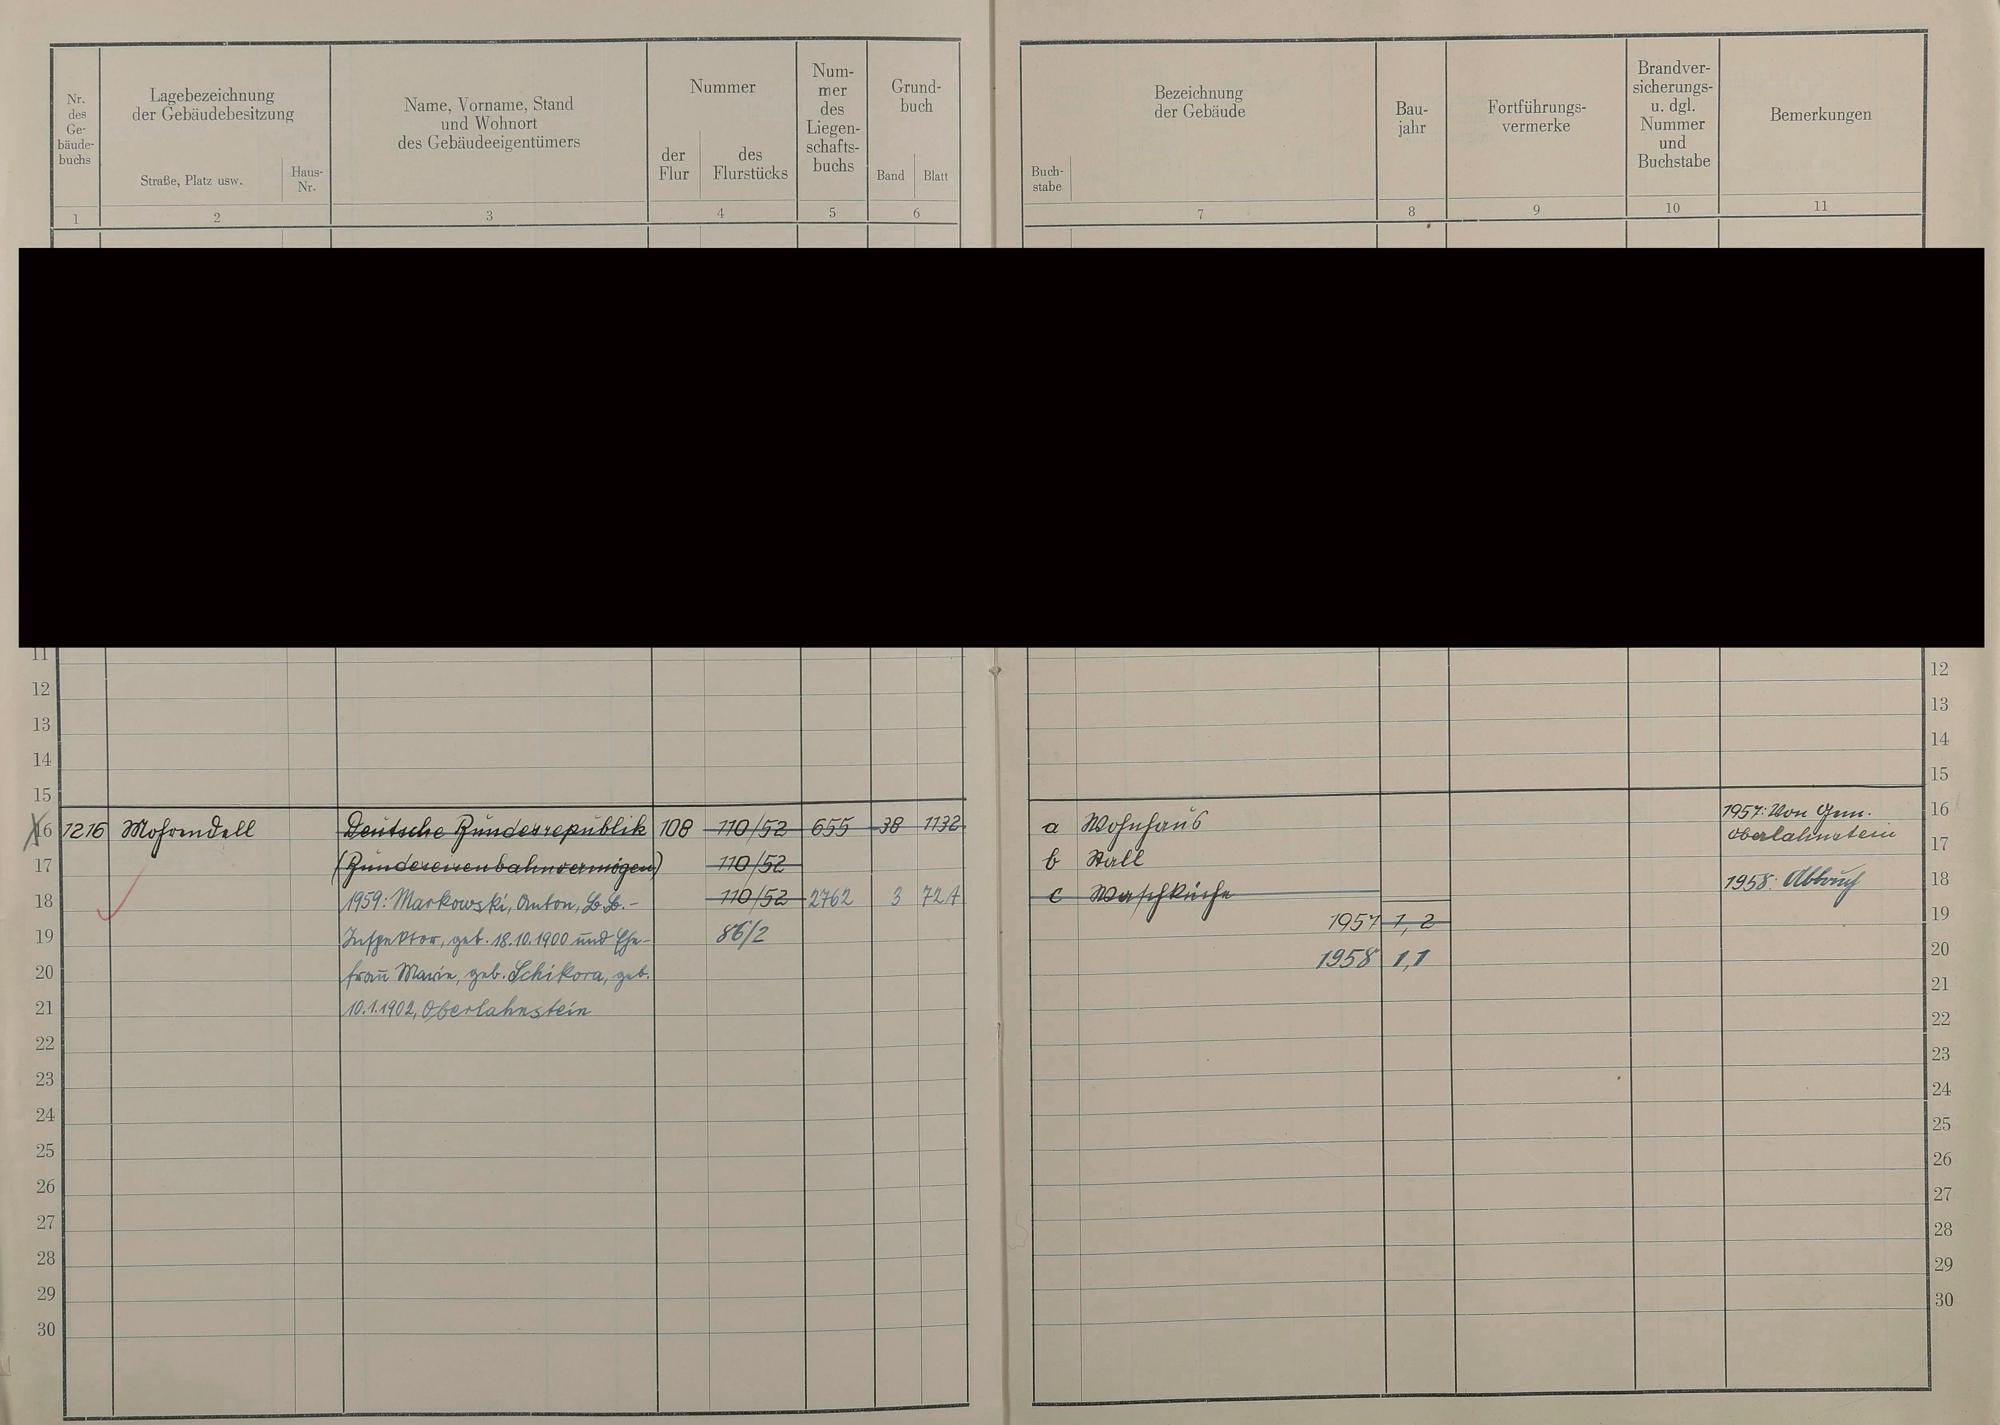 Nr. des Ge- bäude- buchs
Lagebezeichnung der Gebäudebesitzung
Straße, Platz usw.
Haus- Nr.
Name, Vorname, Stand und Wohnort des Gebäudeeigentümers
Nummer
der Flur
des Flurstücks
Num- mer des Liegen- schafts- buchs
Grund- buch
Band
Blatt
1 2 3 4 5 6
Bezeichnung der Gebäude
Buch- stabe
Bau- jahr
Fortführungs- vermerke
Brandver- sicherungs- u. dgl. Nummer und Buchstabe
Bemerkungen
7 8 9 10 11
11
12
13
14
15
16 1216 Mohrendell Deutsche Bundesrepublik 108 110/52 655 38 1132
17 (Bundeseisenbahnvermögen) 110/52
18 1959: Markowski, Anton, B.B.- 110/52 2762 3 72A
19 Inspektor, geb. 18.10.1900 und Ehe- 86/2
20 frau Marie, geb. Schikora, geb.
21 10.1.1902, Oberlahnstein
22
23
24
25
26
27
28
29
30
12
13
14
15
a Wohnhaus 1957: Von Gem. 16
b Stall Oberlahnstein 17
c Waschküche 1958: Abbruch 18
1957 1, 2 19
1958 1,1 20
21
22
23
24
25
26
27
28
29
30